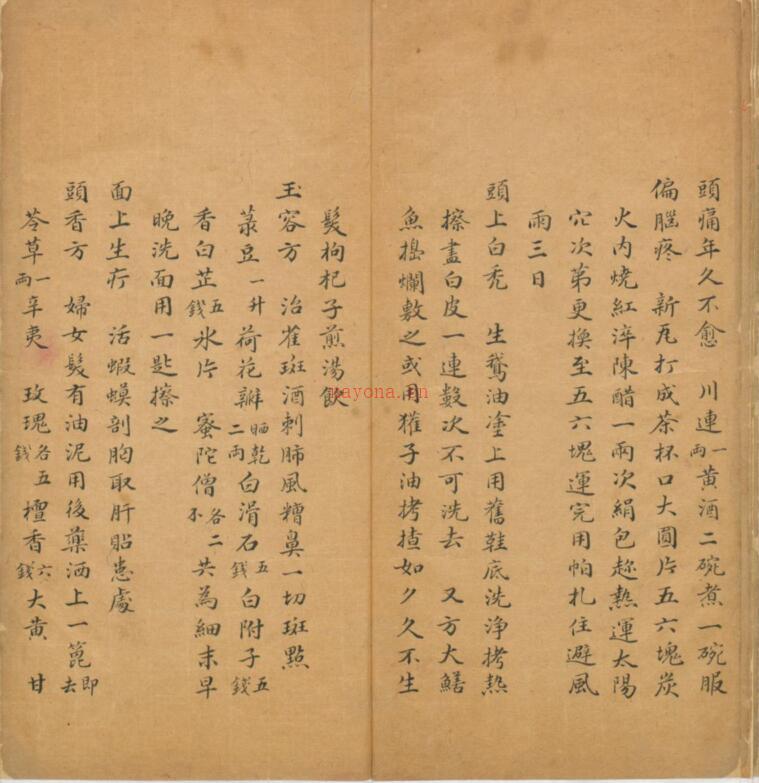 頭痛年久不愈　川連一兩黃酒二碗煮一碗服
偏腦疼　新瓦打成茶杯口大圓片五六塊炭
火內燒紅淬陳醋一兩次絹包趂熱運太陽
穴次第更換至五六塊運完用帕扎住避風
兩三日
頭上白禿　生鵝油塗上用舊鞋底洗淨拷熱
擦盡白皮一連數次不可洗去　又方大鱔
魚搗爛敷之或用獾子油拷揸如夕久不生
髮枸杞子煎湯飲
玉容方　治雀斑酒刺肺風糟鼻一切斑點
菉豆一升荷花瓣晒乾二兩白滑石五錢白附子五錢
香白芷五錢氷片　蜜陀僧各二不共為細末早
晚洗面用一匙擦之
面上生疔　活蝦蟆剖胸取肝貼患處
頭香方　婦女髮有油泥用後藥洒上一篦即去
苓草一兩辛夷　玫瑰各五錢檀香六錢大黃　甘
nayona.cn